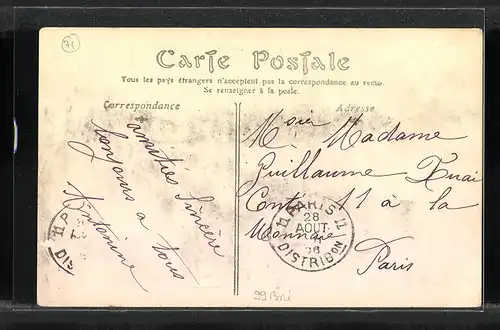 71
Carte Postale
Tous les pays étrangers n'acceptent pas la correspondance au recto.
Se renseigner à la poste.
Correspondance
Adresse
amitiés sincère
toujours a tous
Antonine
Msier Madame
Guillaume Quai
Conti 11 à la
Monnaie
Paris
PARIS 11
28
AOUT
DISTRIBON
11 P
DIS